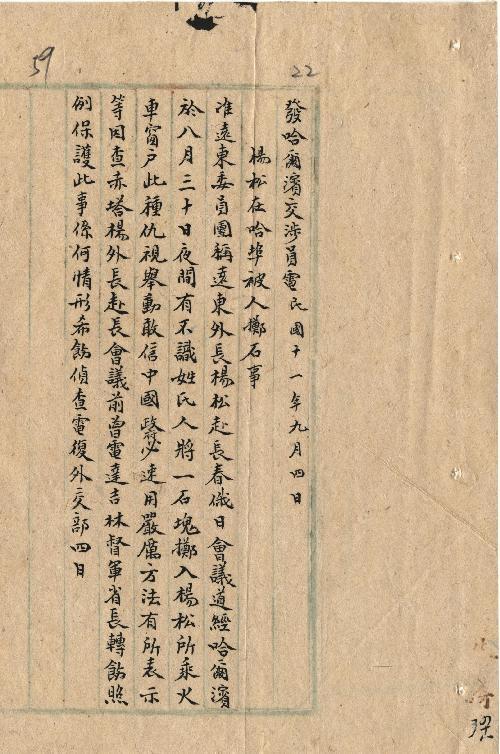 59
22
發哈爾濱交涉員電民國十一年九月四日
楊松在哈埠被人擲石事
准遠東委員團稱遠東外長楊松赴長春俄日會議道經哈爾濱
於八月三十日夜間有不識姓氏人將一石塊擲入楊松所乘火
車窗戶此種仇視舉動敢信中國政府必速用嚴厲方法有所表示
等因查赤塔楊外長赴長會議前曾電達吉林督軍省長轉飭照
例保護此事係何情形希飭偵查電復外交部四日